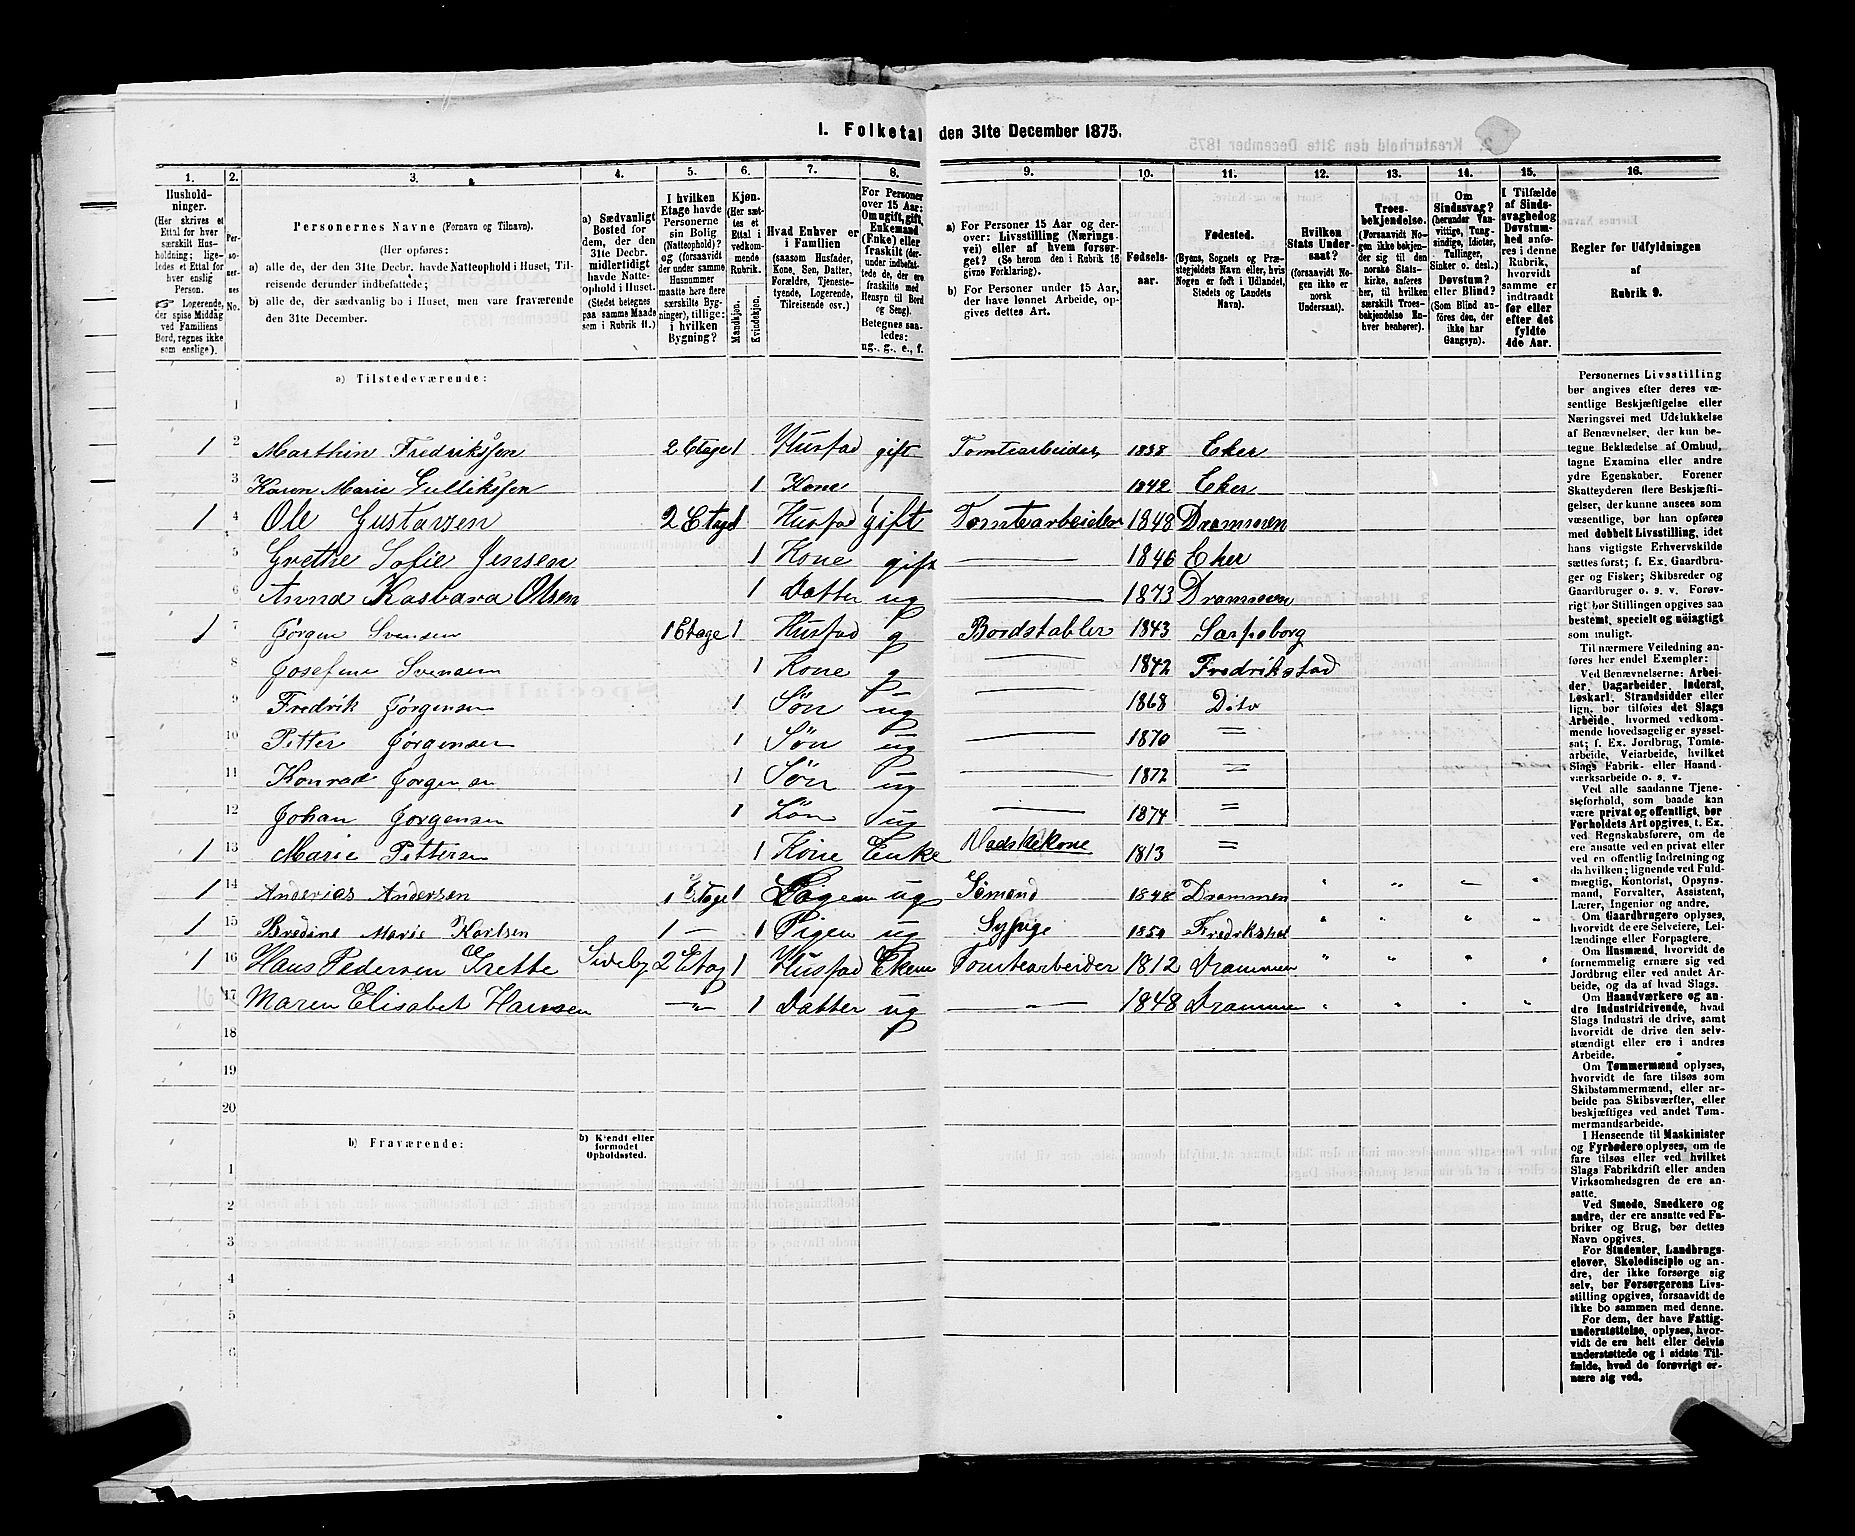 1. Folketal den 31te December 1875.
2. Kreaturhold den 31te December 1875
1. 2. 3. 4. 5. 6. 7. 8. 9. 10. 11. 12. 13. 14. 15. 16.
Hushold-
ninger.
(Her skrives et
Ettal for hver
særskilt Hus-
holdning; lige-
ledes et Ettal for
hver enslig
Person.
☞ Logerende,
der spise Middag
ved Familiens
Bord, regnes ikke
som enslige).
Per-
so-
ner-
nes
No.
Personernes Navne (Fornavn og Tilnavn).
(Her opføres:
a) alle de, der den 31te Decbr. havde Natteophold i Huset, Til-
reisende derunder indbefattede;
b) alle de, der sædvanlig bo i Huset, men vare fraværende
den 31te December.
a) Sædvanligt
Bosted for
dem, der den
31te Decbr.
midlertidigt
havde Natte-
ophold i Huset.
(Stedet betegnes
paa samme Maade
som i Rubrik 11.)
I hvilken
Etage havde
Personerne
sin Bolig
(Natteophold)?
og (forsaavidt
der under samme
Husnummer
maatte høre flere
særskilte Byg-
ninger), tillige:
i hvilken
Bygning?
Kjøn.
(Her sæt-
tes et
Ettal i
vedkom-
mende
Rubrik.
Mandkjøn.
Kvindekjøn.
Hvad Enhver er
i Familien
(saasom Husfader,
Kone, Søn, Datter,
Forældre, Tjeneste-
tyende, Logerende,
Tilreisende osv.)
For Personer
over 15 Aar:
Om ugift, gift,
Enkemand
(Enke) eller
fraskilt (der-
under indbefat-
tede de, der ere
fraskilte med
Hensyn til Bord
og Seng).
Betegnes saa-
ledes:
ug., g., e., f.
a) For Personer 15 Aar og der-
over: Livsstilling (Nærings-
vei) eller af hvem forsør-
get? (Se herom den i Rubrik 16
givne Forklaring).
b) For Personer under 15 Aar,
der have lønnet Arbeide, op-
gives dettes Art.
Fødsels-
aar.
Fødested.
(Byens, Sognets og Præ-
stegjeldets Navn eller, hvis
Nogen er født i Udlandet,
Stedets og Landets
Navn).
Hvilken
Stats Under-
saat?
(forsaavidt No-
gen ikke er
norsk
Undersaat).
Troes-
bekjendelse.
(Forsaavidt No-
gen ikke bekjen-
der sig til den
norske Stats-
kirke, anføres
her, til hvilken
særskilt Troes-
bekjendelse En-
hver henhører).
Om
Sindssvag?
(herunder Van-
vittige, Tung-
sindige, Idioter,
Tullinger,
Sinker o. desl.)
Døvstum?
eller Blind?
(Som Blind an-
føres den, der
ikke har
Gangsyn).
I Tilfælde
af Sinds-
svaghed og
Døvstum-
hed anfø-
res i denne
Rubrik,
hvorvidt
samme er
indtraadt
før eller
efter det
fyldte
4de Aar.
Regler for Udfyldningen
af
Rubrik 9.
a) Tilstedeværende:
1
1 2 Marthin Fredriksen 2 Etage 1 Husfad gift Tomtearbeider 1838 Eker
3 Karen Marie Gulliksen 1 Kone 1842 Eker
1 4 Ole Gustavsen 2 Etage 1 Husfad gift Tomtearbeider 1848 Drammen
5 Grethe Sofie Jensen 1 Kone gift — 1846 Eker
6 Anna Kasbara Olsen 1 Datter ug — 1873 Drammen
1 7 Jørgen Svensen 1 Etage 1 Husfad g Bordstabler 1843 Sarpsborg
8 Josefine Svensen 1 Kone g — 1842 Fredrikstad
9 Fredrik Jørgensen 1 Søn ug — 1868 Dito
10 Petter Jørgensen 1 Søn ug — 1870 =
11 Konrad Jørgensen 1 Søn ug — 1872 =
12 Johan Jørgensen 1 Søn ug — 1874 =
1 13 Marie Pettersen 1 Kone Enke Vadskekone 1813 =
1 14 Andreas Andersen 1 Etage 1 ug Sømand 1848 Drammen " " — "
1 15 Bredine Marie Karlsen 1 — 1 Pigen ug Sypige 1850 " " " "
1 16 Hans Pedersen Grette Sideby 2 Etag 1 Husfad Ekem Tomtearbeider 1812 Drammen " " " "
17 Maren Elisabet Hansen —"— 1 Datter ug —"— 1848 Drammen " " " "
18
19
20
b) Fraværende:
b) Kjendt eller
formodet
Opholdssted.
1
2
3
4
5
6
Personernes Livsstilling
bør angives efter deres væ-
sentlige Beskjæftigelse eller
Næringsvei med Udelukkelse
af Benævnelser, der kun be-
tegne Beklædelse af Ombud,
tagne Examina eller andre
ydre Egenskaber. Forener
Skatteyderen flere Beskjæfti-
gelser, der kunne ansees som
væsentlige, bør han opføres
med dobbelt Livsstilling, idet
hans vigtigste Erhvervskilde
sættes først; f. Ex. Gaardbru-
ger og Fisker; Skibsreder og
Gaardbruger o. s. v. Forøv-
rigt bør Stillingen opgives saa
bestemt, specielt og nøiagtigt
som muligt.
Til nærmere Veiledning an-
føres her endel Exempler:
Ved Benævnelserne: Arbei-
der, Dagarbeider, Inderst,
Løskarl, Strandsidder eller
lign. bør tilføies det Slags
Arbeide, hvormed vedkom-
mende hovedsagelig er syssel-
sat; f. Ex. Jordbrug, Tomte-
arbeide, Veiarbeide, hvilket
Slags Fabrik- eller Haand-
værksarbeide o. s. v.
Ved alle saadanne Tjene-
steforhold, som baade kan
være privat og offentligt, bør
Forholdets Art opgives, t. Ex.
ved Regnskabsførere, om de
ere ansatte ved en privat eller
ved en offentlig Indretning og
da hvilken; lignende ved Fuld-
mægtig, Kontorist, Opsyns-
mand, Forvalter, Assistent,
Lærer, Ingeniør og andre.
Om Gaardbrugere oplyses,
hvorvidt de ere Selveiere, Lei-
lændinge eller Forpagtere.
Om Husmænd, hvorvidt de
fornemmelig ernære sig ved
Jordbrug eller ved andet Ar-
beide, og da af hvad Slags.
Om Haandværkere og an-
dre Industridrivende, hvad
Slags Industri de drive, samt
hvorvidt de drive den selv-
stændigt eller ere i andres
Arbeide.
Om Tømmermænd oplyses,
hvorvidt de fare tilsøs som
Skibstømmermænd, eller ar-
beide paa Skibsværfter, eller
beskjæftiges ved andet Tøm-
mermandsarbeide.
I Henseende til Maskinister
og Fyrbødere oplyses, om de
fare tilsøs eller ved hvilket
Slags Fabrikdrift eller anden
Virksomhedsgren de ere an-
satte.
Ved Smede, Snedkere og
andre, der ere ansatte ved Fa-
briker og Brug, bør dettes
Navn opgives.
For Studenter, Landbrugs-
elever, Skoledisciple og an-
dre, der ikke forsørge sig
selv, bør Forsørgerens Livs-
stilling opgives, forsaavidt de
ikke bo sammen med denne.
For dem, der have Fattig-
understøttelse, oplyses, hvor-
vidt de ere helt eller delvis
understøttede og i sidste Til-
fælde, hvad de forøvrigt er-
nære sig ved.